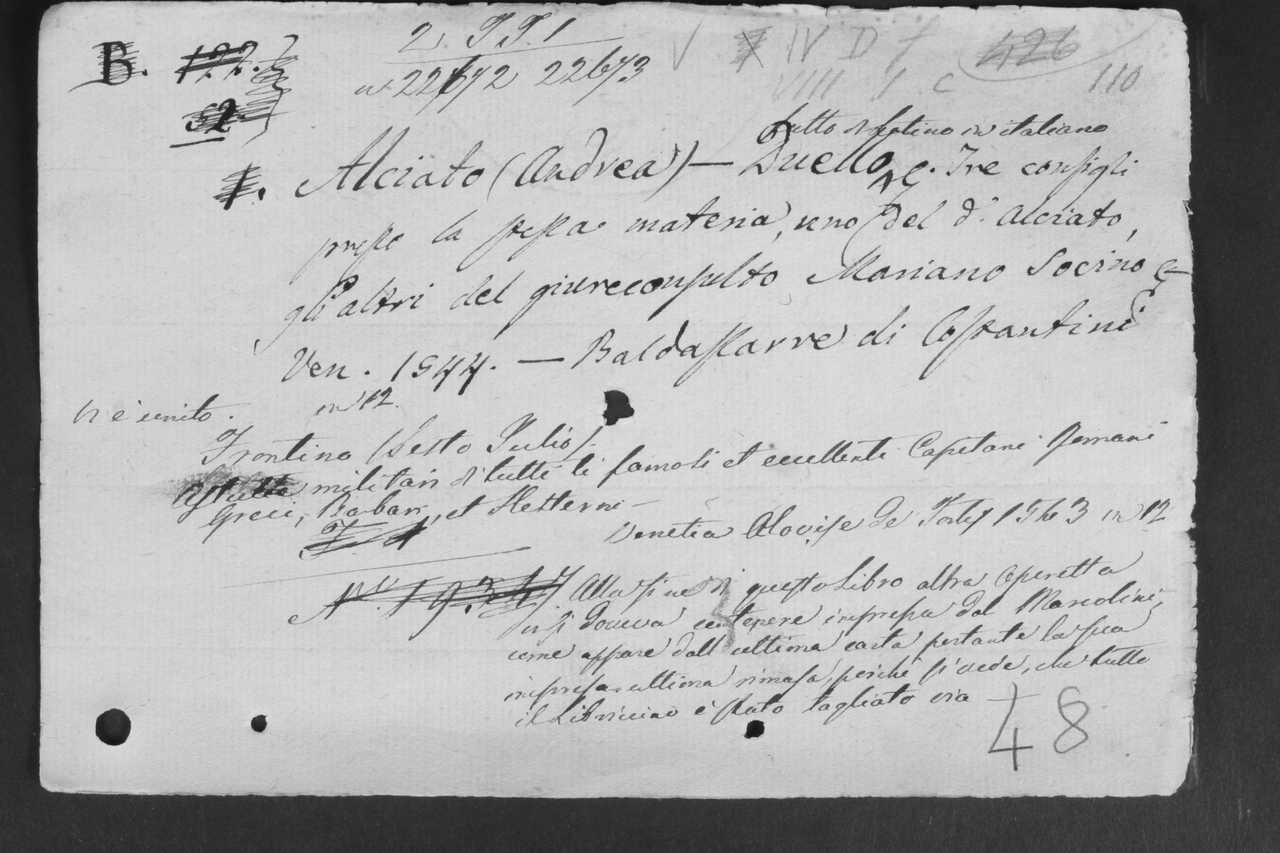 B. 122.
2. T T. 1
V X IV D 7 426
52
nº 22672 22673
VIII 1 C 110
fatto di latino in italiano
1. Alciato (Andrea) — Duello, &. Tre consigli
presso la stessa materia, uno del d. Alciato,
gli altri del giureconsulto Mariano Socino
Ven. 1544. — Baldassarre di Costantini
in 12.
Vi è unito.
Frontino (Sesto Julio)
Astutie militari di tutti li famosi et eccellenti Capitani Romani
Greci, Barbari, et Hesterni —
Venetia Alovise de Tortis 1543 in 12
Alla fine di questo Libro altra operetta
vi si doveva contenere impressa dal Marcolini,
come appare dall' ultima carta portante la sua
impresa ultima rimasa, perché si vede, che tutto
il Libricino è stato tagliato via
48